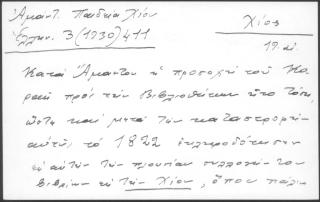 Ἀμαντ. Παιδεία Χίου
Ἑλλην. 3 (1930) 411
Χίος
19 αἰ.
Κατὰ Ἄμαντον ἡ προσοχὴ τοῦ Κο
ραῆ πρὸς τὴν βιβλιοθήκην ἦτο τόση,
ὥστε καὶ μετὰ τὴν καταστροφὴν
αὐτῆς τὸ 1822 ἐκληροδότησεν
εἰς αὐτὴν τὴν πλουσίαν συλλογὴν του
βιβλίων εἰς τὴν Χίον, ὅπου πάλιν